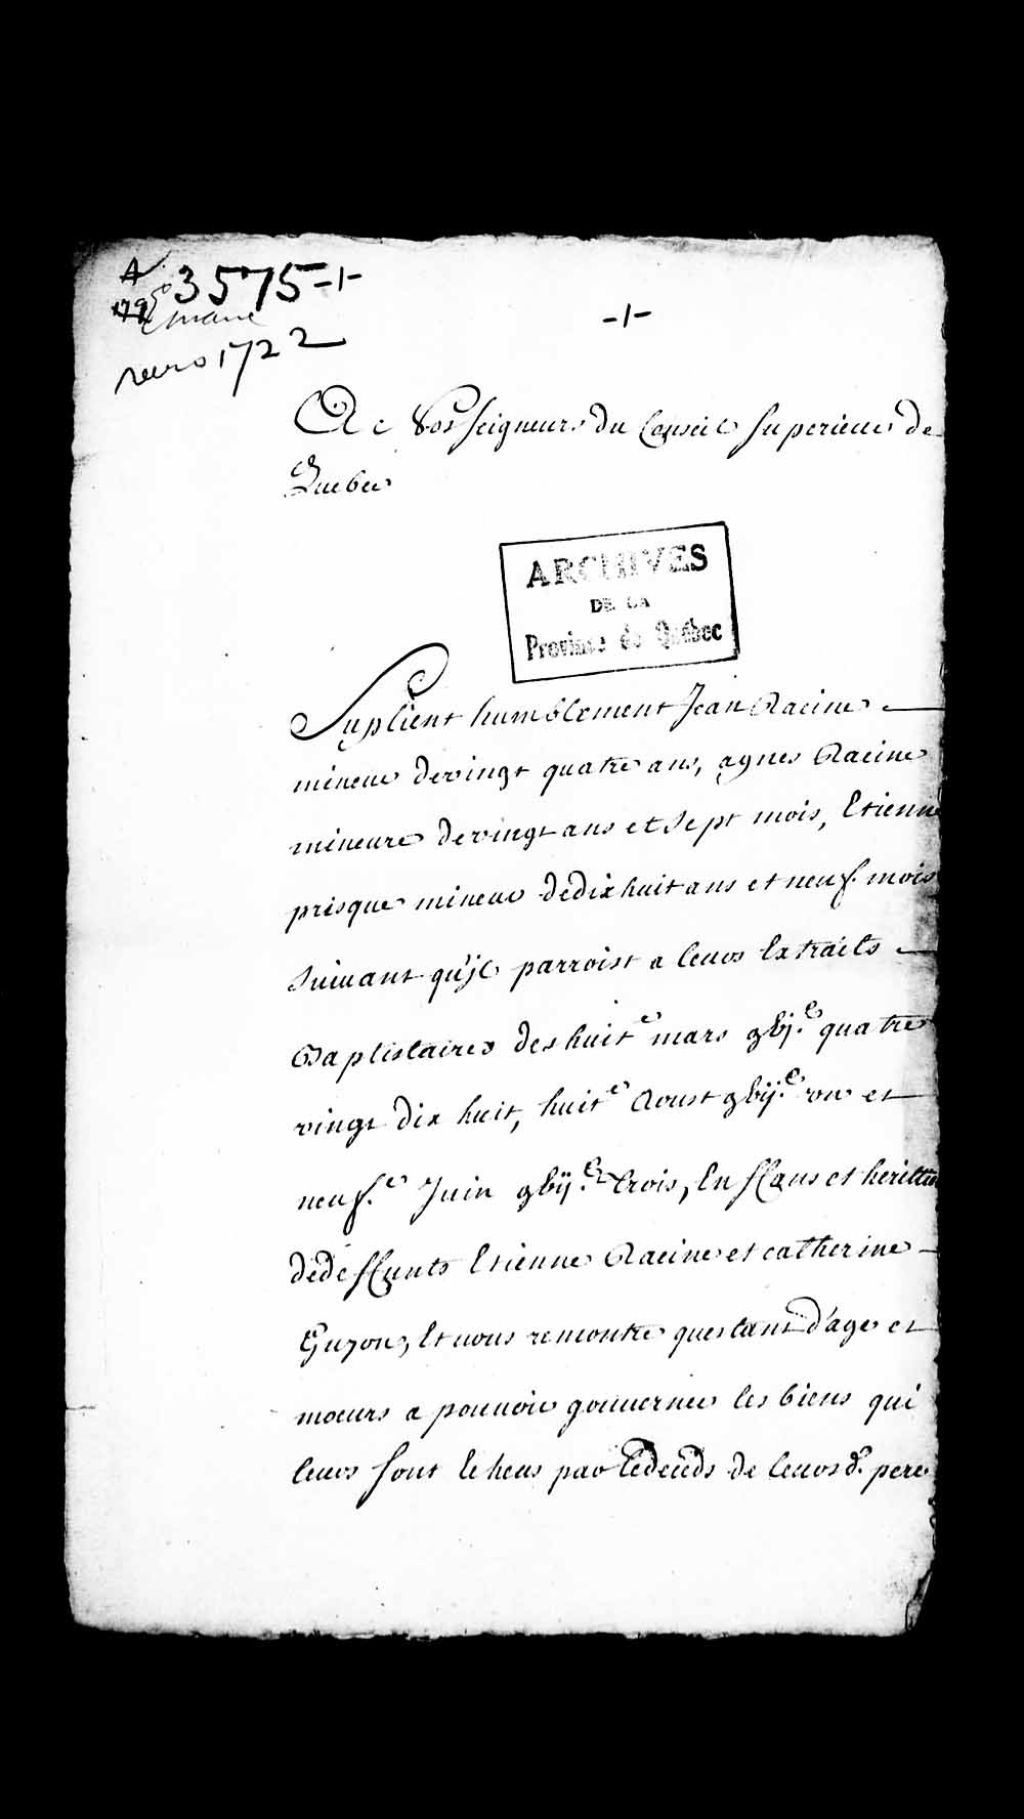 3575-1-
1722
-1-
A Nosseigneurs du Conseil superieur de
Quebec
ARCHIVES
DE LA
Province de Québec
Suplient humblement Jean Racine
mineur de vingt quatre ans, agnes Racine
mineure de vingt ans et sept mois, Etienne
prisque mineur de dix huit ans et neuf mois
suivant qu'jl parroist a leurs Extraits
Baptistaires des huit.e mars gbj.c quatre
vingt dix huit, huit.e Aoust gbij.c un et
neuf.e Juin gbij.c trois, Enffans et heritiers
de deffunts Etienne Racine et catherine
Guyon, Et vous remontre questant d'age et
moeurs a pouvoir gouverner les biens qui
leurs sont Echeus par Ledeceds de leurs d. pere